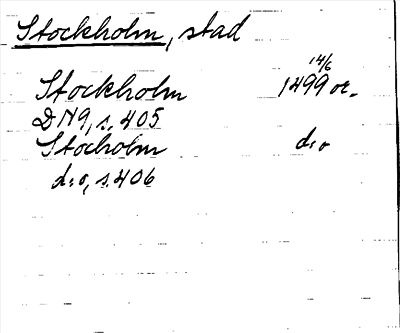 Stockholm, stad
14/6
Stockholm 1499 or.
D N9, s. 405
Stocholm d:o
d:o, s. 406